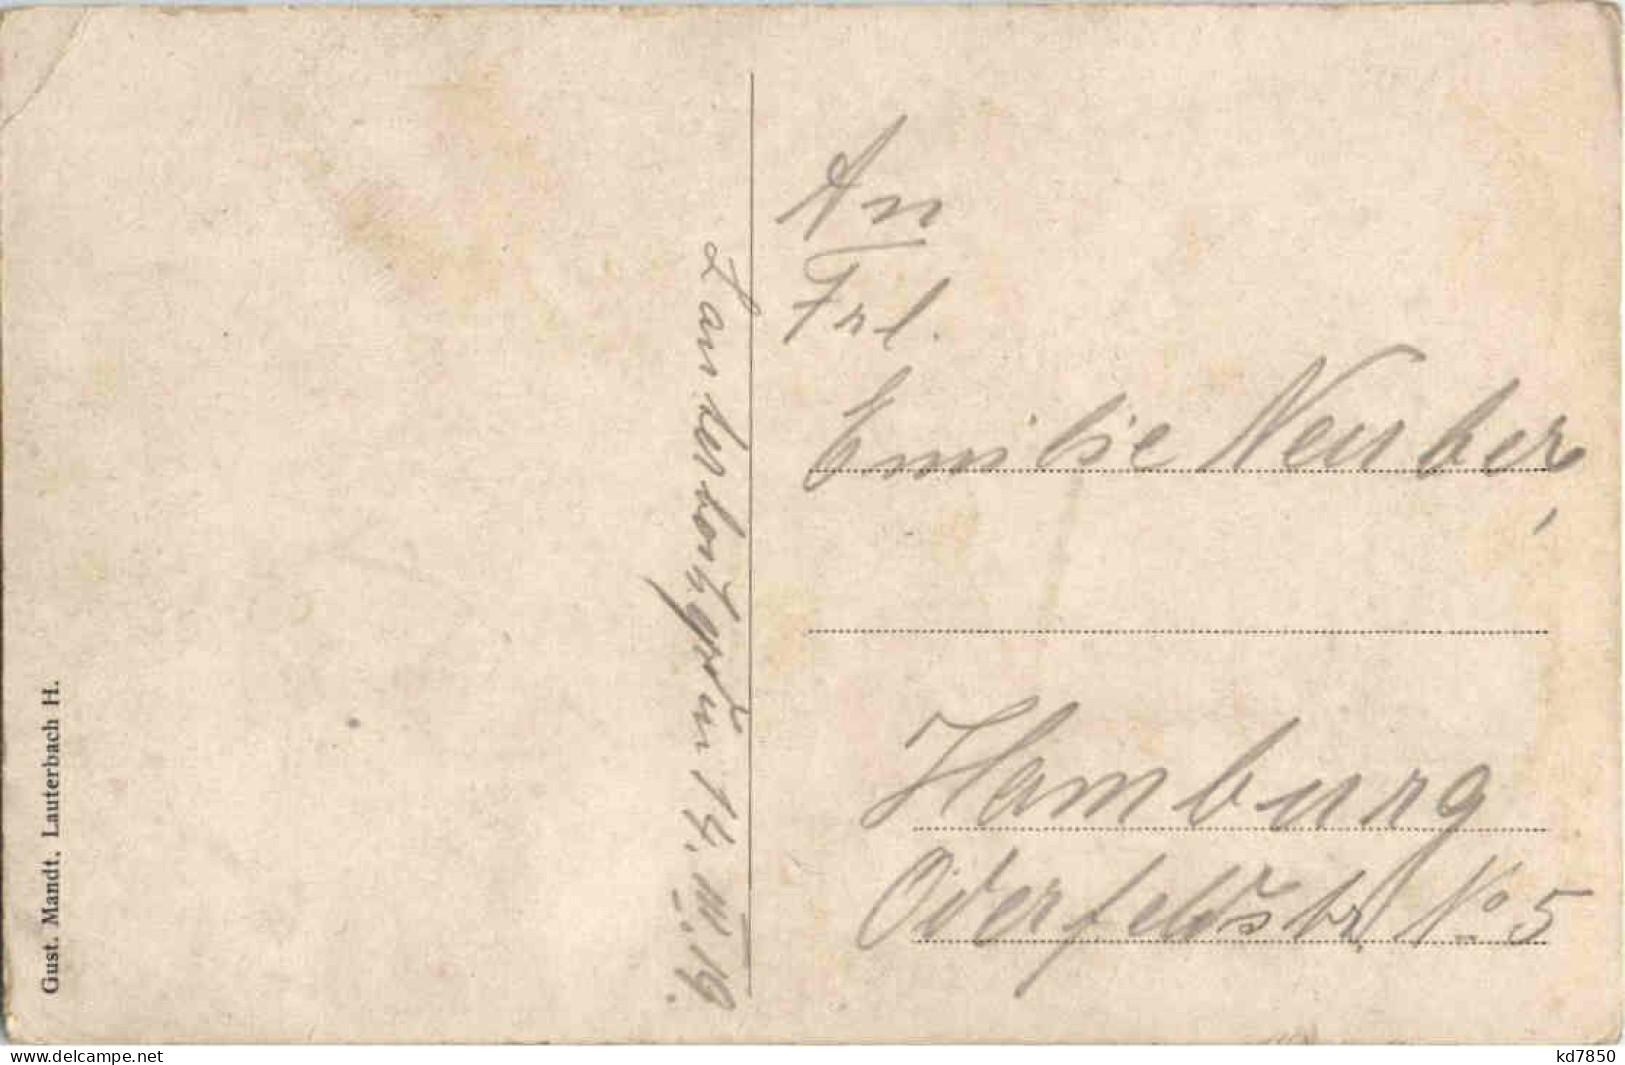 Gust. Mandt, Lauterbach H.
14. III. 19.
An
Frl.
Emilie Neuber,
Hamburg
Oderfeldstr. No 5
www.delcampe.net
kd7850